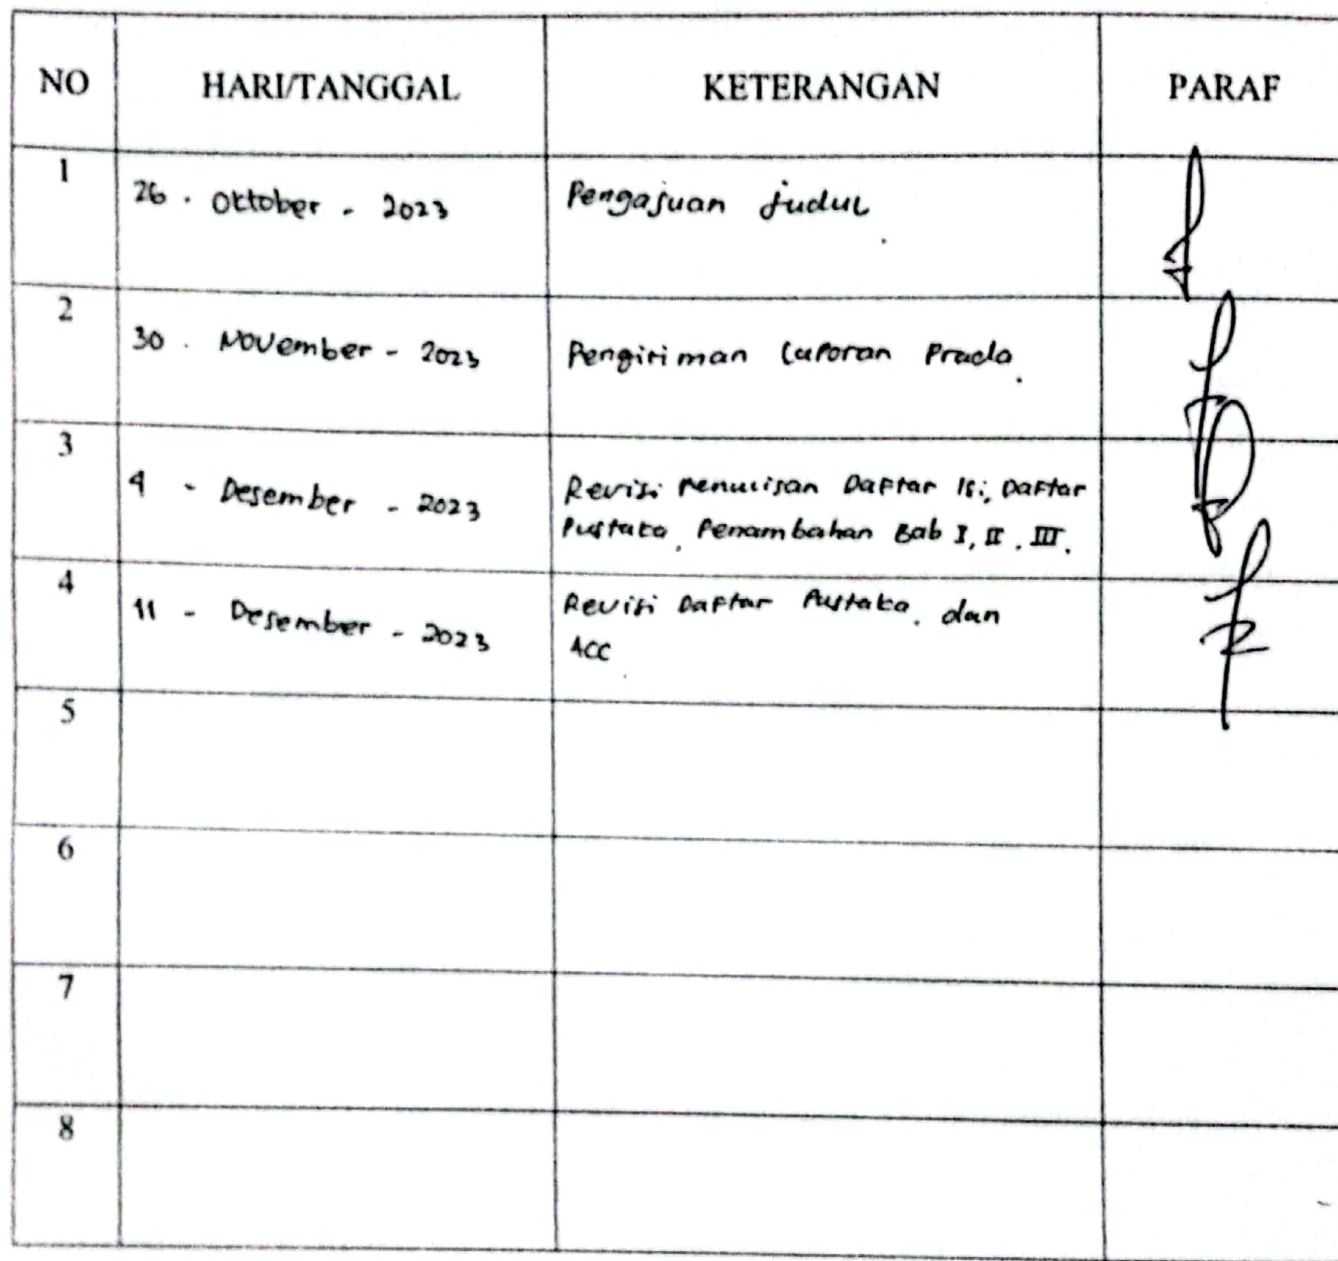 NO HARI/TANGGAL KETERANGAN PARAF
1 26 . Oktober - 2023 Pengajuan judul
2 30 . November - 2023 Pengiriman Laporan
3 4 - Desember - 2023 Revisi Penulisan Daftar Isi, Daftar
Pustaka, Penambahan Bab I, II, III.
4 11 - Desember - 2023 Revisi Daftar Pustaka, dan
ACC
5
6
7
8